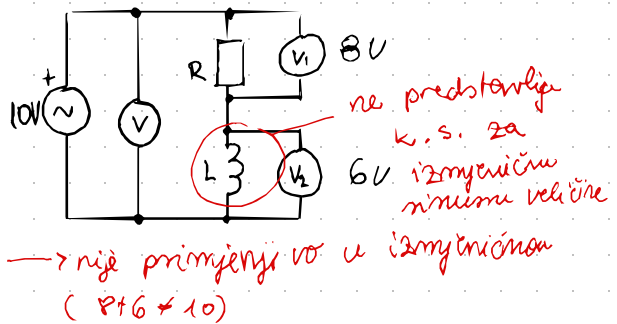 +
10V
~
V
R
V₁
8V
L
V₂
6V
ne predstavlja
k.s. za
izmjeničnu
sinusnu veličine
→ nije primjenjivo u izmjeničnom
(8+6 ≠ 10)